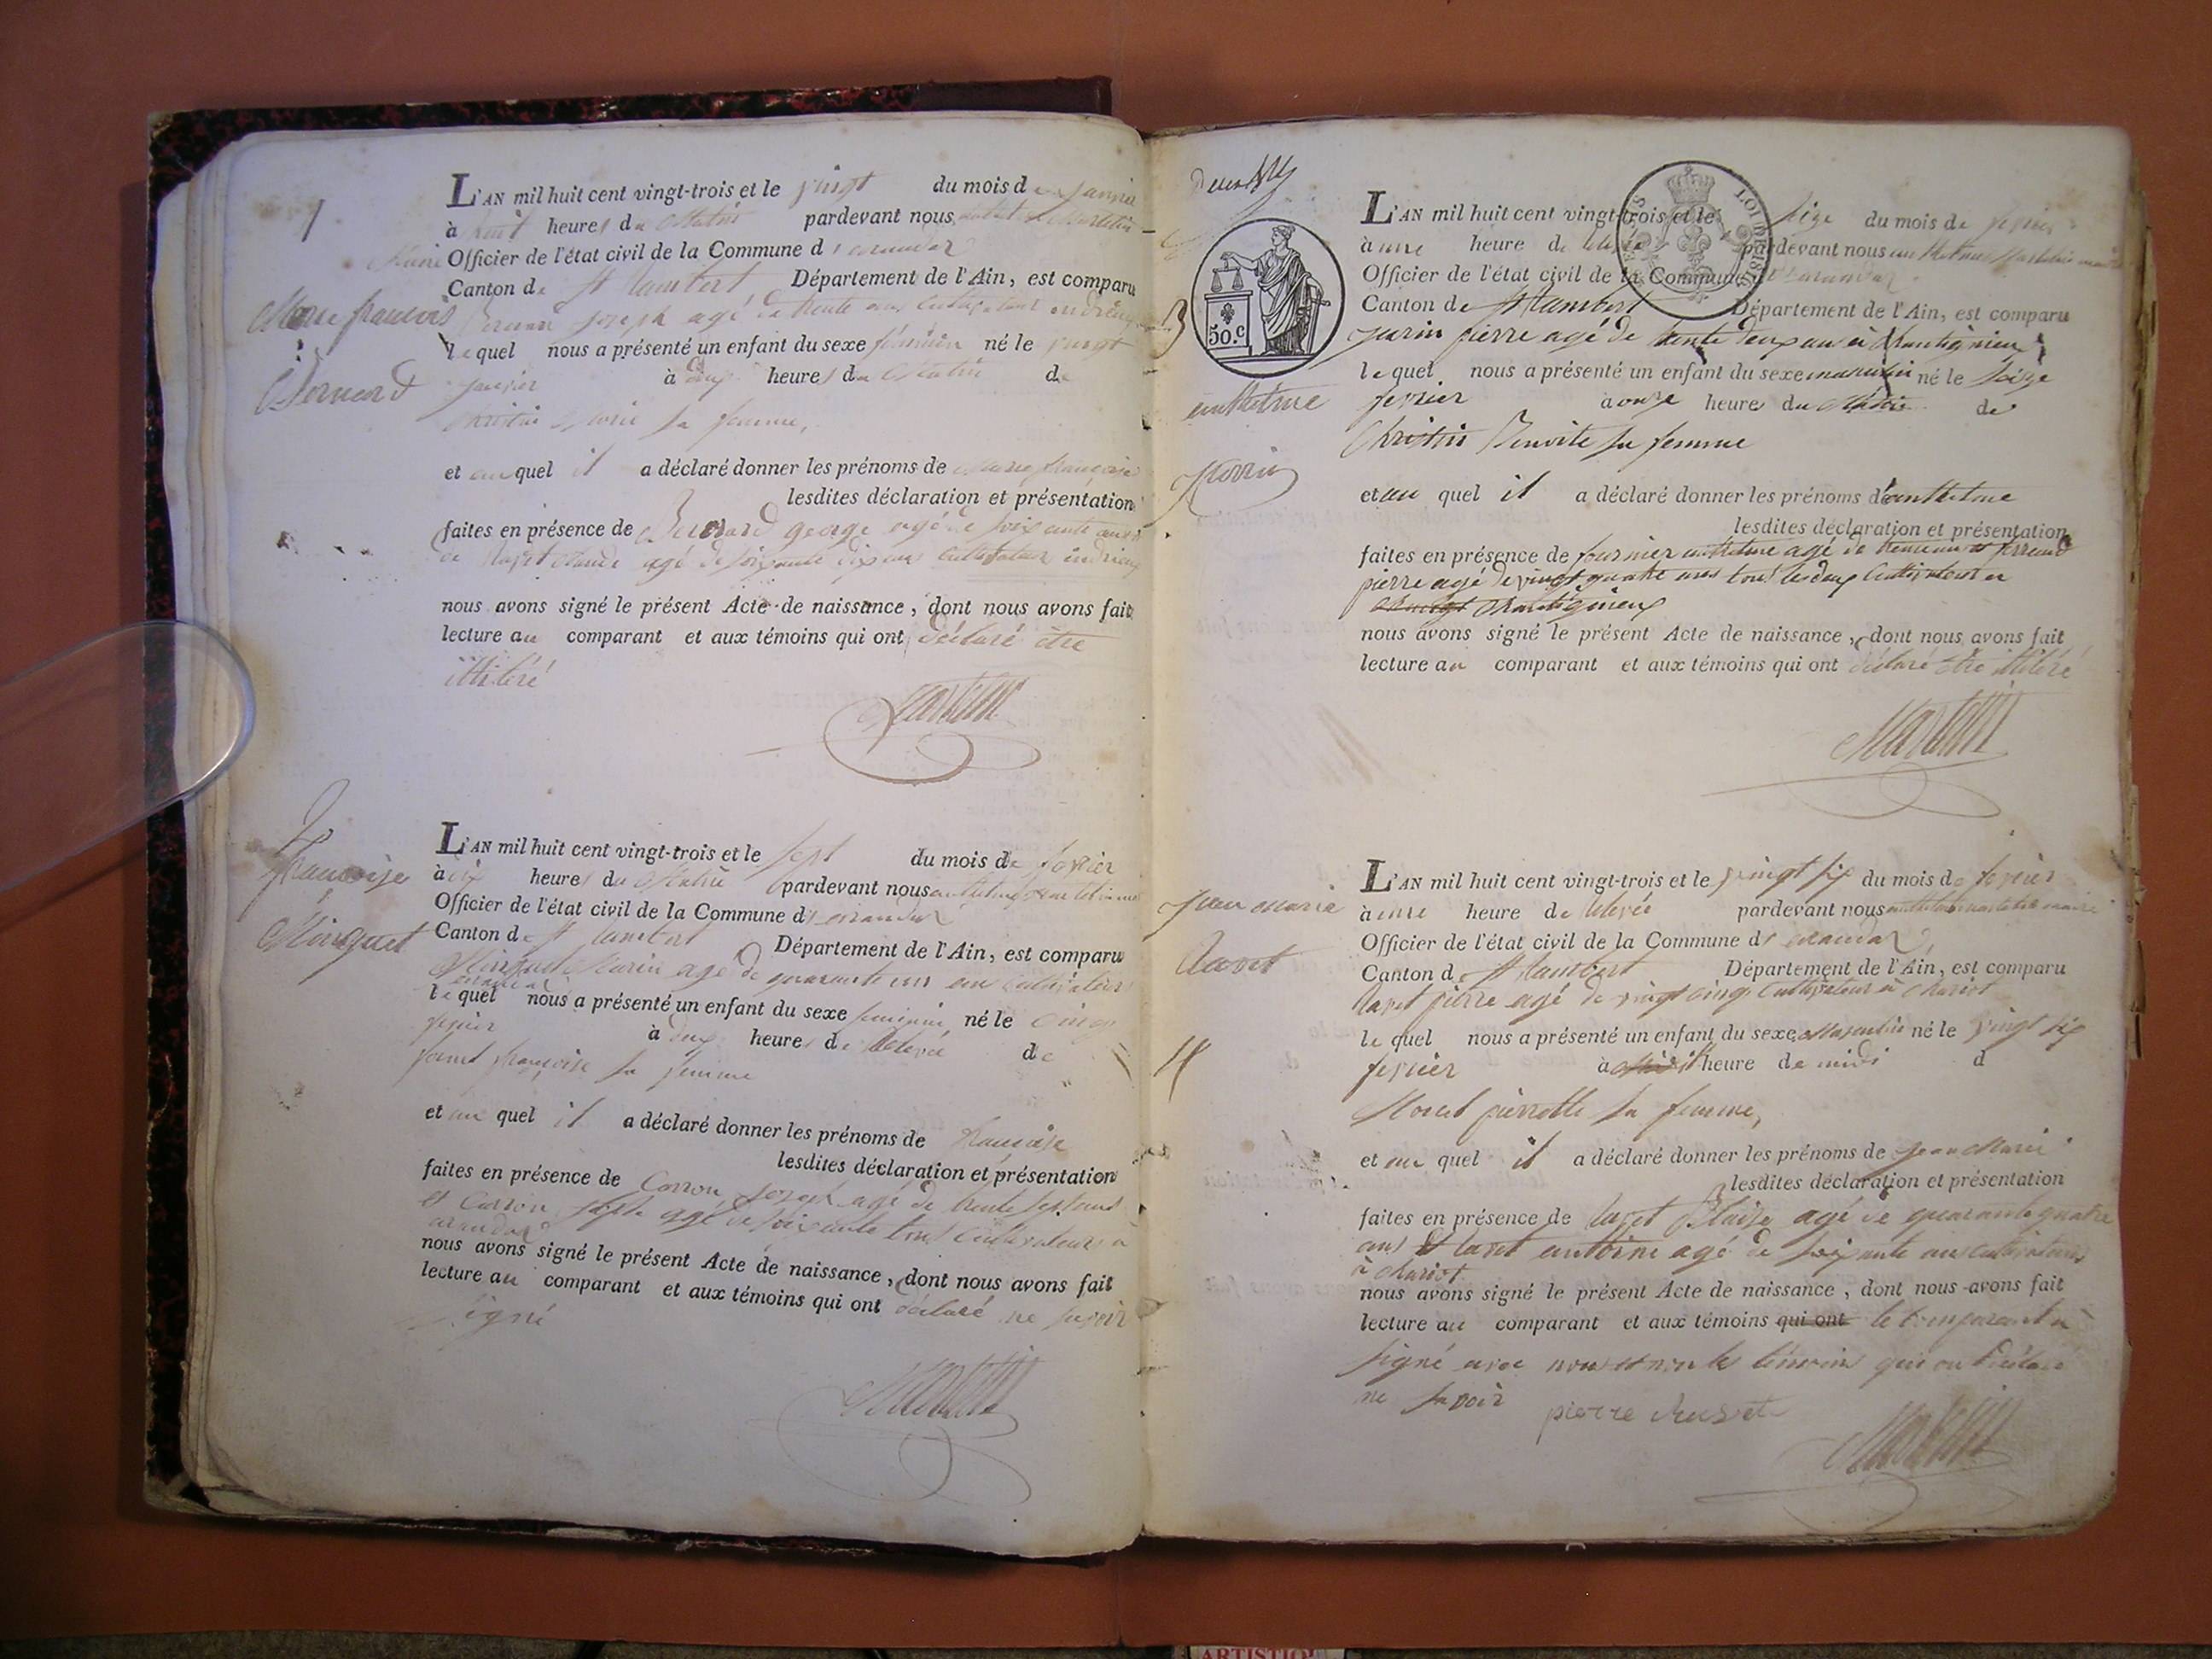 1
L'AN mil huit cent vingt-trois et le vingt du mois de janvier
à huit heures du Matin pardevant nous
Maire Officier de l'état civil de la Commune d'arandas
Canton de St Rambert Département de l'Ain, est comparu
Marie françoise
Bernard joseph agé de trente ans Cultivateur indrieu
lequel nous a présenté un enfant du sexe féminin né le vingt
Bernard
janvier à deux heures du Matin de
Christin Marie sa femme,
et auquel il a déclaré donner les prénoms de Marie françoise
lesdites déclaration et présentation
faites en présence de Bernard george agé de soixante ans
et claude agé de soixante dix ans Cultivateur indrieu
nous avons signé le présent Acte de naissance, dont nous avons fait
lecture au comparant et aux témoins qui ont déclaré être
illitéré
Martelin
2
françoise
Minguet
L'AN mil huit cent vingt-trois et le sept du mois de fevrier
à dix heures du Matin pardevant nous anthelme martelin maire
Officier de l'état civil de la Commune d'arandas
Canton de St Rambert Département de l'Ain, est comparu
Minguet Marin agé de quarante un ans cultivateur
arandas
lequel nous a présenté un enfant du sexe feminin né le cinq
fevrier à deux heures de Relevée de
françoise sa femme
et auquel il a déclaré donner les prénoms de françoise
lesdites déclaration et présentation
faites en présence de Carron joseph agé de trente sept ans
et Carron agé de soixante tous Cultivateurs a
arandas
nous avons signé le présent Acte de naissance, dont nous avons fait
lecture au comparant et aux témoins qui ont déclaré ne savoir
signé
Martelin
50.c
LOI DE 1816
3
anthelme
L'AN mil huit cent vingt-trois et le seize du mois de fevrier
à une heure de Relevée pardevant nous anthelme Martelin maire
Officier de l'état civil de la Commune d'arandas
Canton de St Rambert Département de l'Ain, est comparu
pierre agé de trente deux ans à Montignieux
lequel nous a présenté un enfant du sexe masculin né le seize
fevrier à onze heures du Matin de
Christin Benoite sa femme
et au quel il a déclaré donner les prénoms d'anthelme
lesdites déclaration et présentation
faites en présence de fournier anthelme agé de trente ans et ferrand
pierre agé de vingt quatre ans tous les deux Cultivateur a
Montignieux
nous avons signé le présent Acte de naissance, dont nous avons fait
lecture au comparant et aux témoins qui ont déclaré être illitéré
Martelin
4
jean marie
Ravet
L'AN mil huit cent vingt-trois et le vingt six du mois de fevrier
à une heure de Relevée pardevant nous anthelme martelin maire
Officier de l'état civil de la Commune d'arandas
Canton de St Rambert Département de l'Ain, est comparu
Ravet pierre agé de vingt cinq Cultivateur à
lequel nous a présenté un enfant du sexe Masculin né le vingt six
fevrier à heure de midi d
pierrette sa femme,
et au quel il a déclaré donner les prénoms de jean Marie
lesdites déclaration et présentation
faites en présence de Ravet Blaise agé de quarante quatre
ans et Ravet antoine agé de soixante ans cultivateurs
à
nous avons signé le présent Acte de naissance, dont nous avons fait
lecture au comparant et aux témoins qui ont le comparant a
signé avec nous et non les témoins qui ont déclaré
ne savoir
pierre
Martelin
ARTISTIQ